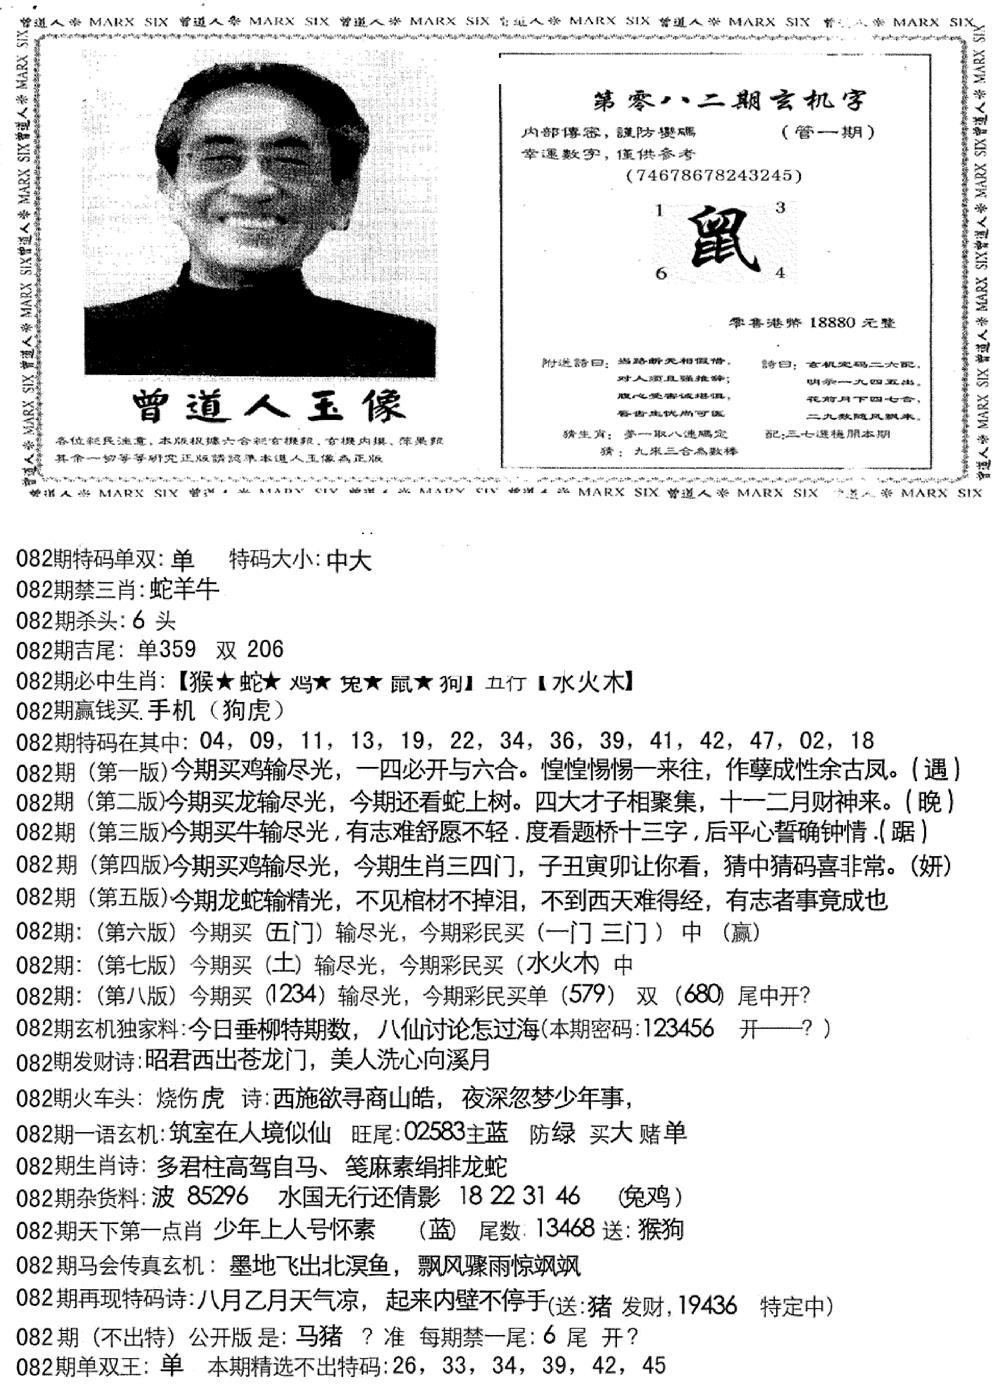 曾道人※ MARX SIX 曾道人※ MARX SIX 曾道人※ MARX SIX 曾道人※ MARX SIX 曾道人※ MARX SIX 曾道人※ MARX SIX
第零八二期玄机字
内部傳密，謹防變碼 （管一期）
幸運數字，僅供參考
(74678678243245)
1 3
鼠
6 4
零售港幣 18880 元整
附送詩曰：当路断无相假借，
对人须且强推辞；
腹心受害诚堪惧，
唇齿生忧尚可医
詩曰：玄机定码二六配，
明示一九四五出，
花前月下四七合，
二九数随风飘来。
猜生肖：夢一取八連碼定 配：三七選種開本期
猜：九來三合為數棒
曾道人玉像
各位彩民注意，本版根據六合彩玄機報、玄機内摸、苹果報
其余一切等等研究正版請認準本道人玉像為正版
曾道人※ MARX SIX 曾道人※ MARX SIX 曾道人※ MARX SIX 曾道人※ MARX SIX 曾道人※ MARX SIX
082期特码单双：单 特码大小：中大
082期禁三肖：蛇羊牛
082期杀头：6 头
082期吉尾：单359 双 206
082期必中生肖：【猴★蛇★鸡★兔★鼠★狗】五行【水火木】
082期赢钱买．手机（狗虎）
082期特码在其中：04，09，11，13，19，22，34，36，39，41，42，47，02，18
082期（第一版）今期买鸡输尽光，一四必开与六合。惶惶惕惕一来往，作孽成性余古凤。（遇）
082期（第二版）今期买龙输尽光，今期还看蛇上树。四大才子相聚集，十一二月财神来。（晚）
082期（第三版）今期买牛输尽光，有志难舒愿不轻．度看题桥十三字，后平心誓确钟情．（踞）
082期（第四版）今期买鸡输尽光，今期生肖三四门，子丑寅卯让你看，猜中猜码喜非常。（妍）
082期（第五版）今期龙蛇输精光，不见棺材不掉泪，不到西天难得经，有志者事竟成也
082期：（第六版）今期买（五门）输尽光，今期彩民买（一门 三门 ）中 （赢）
082期：（第七版）今期买（土）输尽光，今期彩民买（水火木）中
082期：（第八版）今期买（1234）输尽光，今期彩民买单（579） 双 （680）尾中开？
082期玄机独家料：今日垂柳特期数，八仙讨论怎过海（本期密码：123456 开——？）
082期发财诗：昭君西出苍龙门，美人洗心向溪月
082期火车头：烧伤虎 诗：西施欲寻商山皓，夜深忽梦少年事，
082期一语玄机：筑室在人境似仙 旺尾：02583主蓝 防绿 买大 赌单
082期生肖诗：多君柱高驾自马、笺麻素绢排龙蛇
082期杂货料：波 85296 水国无行还倩影 18 22 31 46 （兔鸡）
082期天下第一点肖 少年上人号怀素 （蓝） 尾数：13468 送：猴狗
082期马会传真玄机：墨地飞出北溟鱼，飘风骤雨惊飒飒
082期再现特码诗：八月乙月天气凉，起来内壁不停手（送：猪 发财，19436 特定中）
082期（不出特）公开版是：马猪 ？准 每期禁一尾：6 尾 开？
082期单双王：单 本期精选不出特码：26，33，34，39，42，45